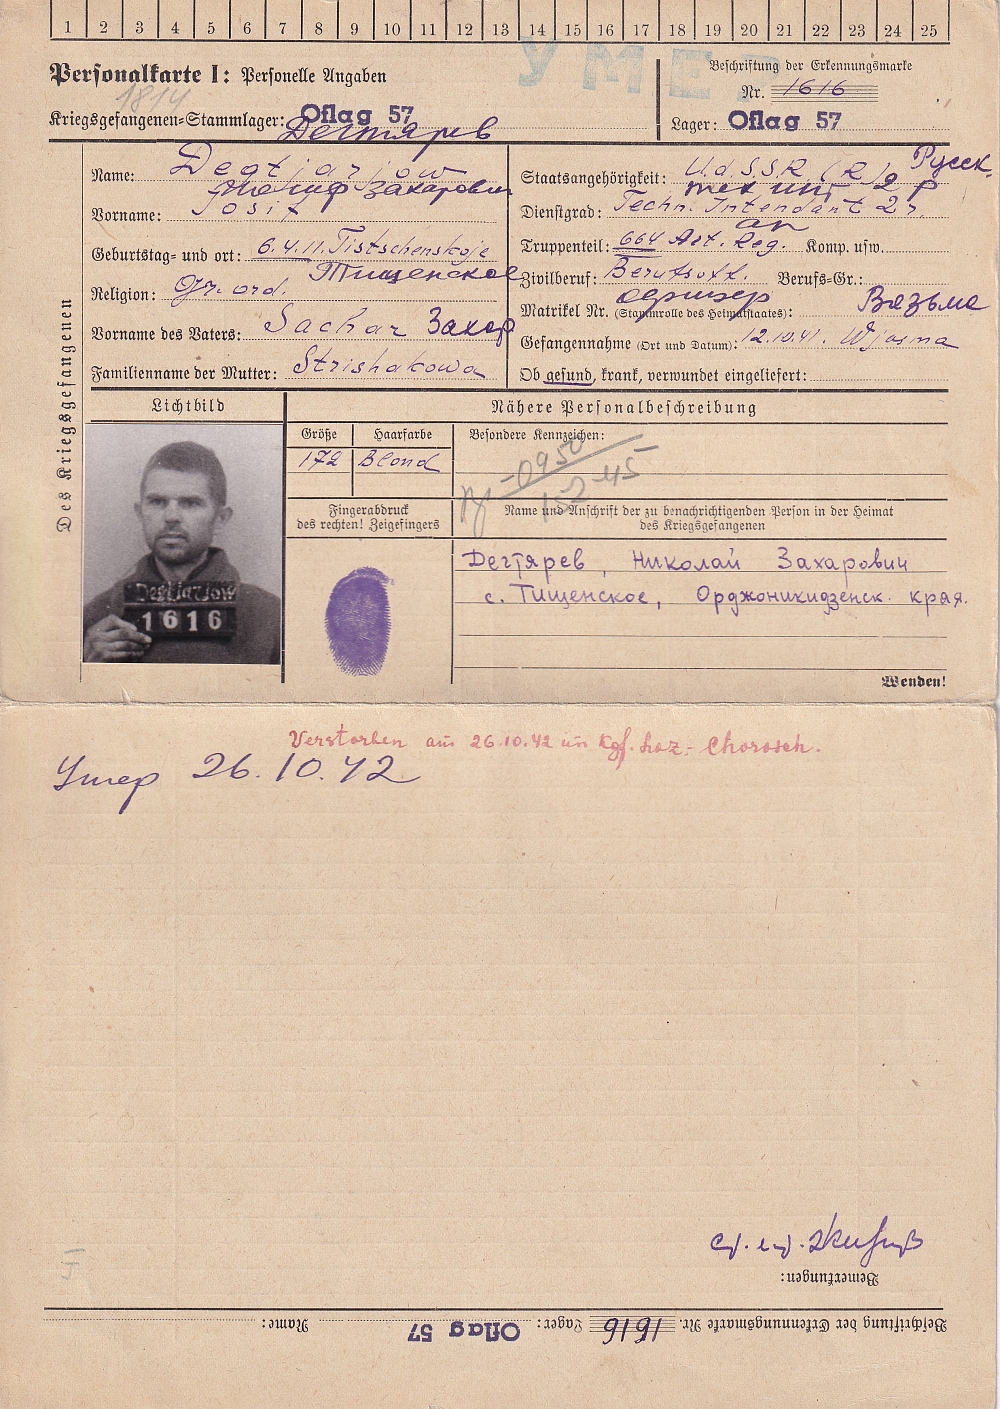 1 2 3 4 5 6 7 8 9 10 11 12 13 14 15 16 17 18 19 20 21 22 23 24 25
УМЕР
Personalkarte I: Personelle Angaben
1814
Kriegsgefangenen-Stammlager: Oflag 57
Beschriftung der Erkennungsmarke
Nr. 1616
Lager: Oflag 57
Des Kriegsgefangenen
Дегтярев
Name: Degtjarow
Иосиф Захарович
Vorname: Josif
Geburtstag- und ort: 6.4.11. Tistschenskoje
Тищенское
Religion: Gr. ord.
Vorname des Vaters: Sachar Захар
Familienname der Mutter: Strishakowa
Русск.
Staatsangehörigkeit: U.d.S.S.R. (R)
тех инт 2 р
Dienstgrad: Techn. Intendant 2r
ап
Truppenteil: 664 Art. Reg. Komp. usw.
Zivilberuf: Berufsoff. Berufs-Gr.:
офицер Вязьма
Matrikel Nr. (Stammrolle des Heimatstaates):
Gefangennahme (Ort und Datum): 12.10.41. Wjasma
Ob gesund, krank, verwundet eingeliefert:
Lichtbild
Nähere Personalbeschreibung
Größe Haarfarbe Besondere Kennzeichen:
172 Blond
-0950
15-2-45
Fingerabdruck
des rechten! Zeigefingers
Name und Anschrift der zu benachrichtigenden Person in der Heimat
des Kriegsgefangenen
Дегтярев, Николай Захарович
с. Тищенское, Орджоникидзенск. края.
Degtjarow
1616
Wenden!
Verstorben am 26.10.42 im Kgf. Laz.- Chorosch.
Умер 26.10.42
Bemerkungen:
Beschriftung der Erkennungsmarke Nr. 1616 Lager: Oflag 57 Name: